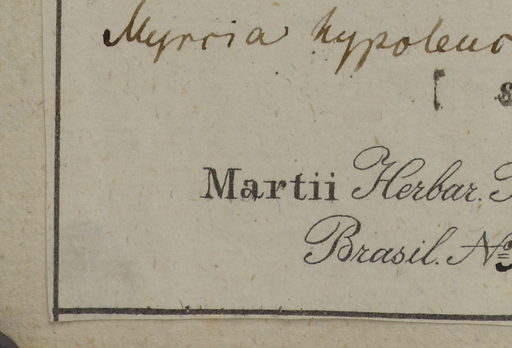 Myrcia hypoleuc
Martii Herbar.
Brasil. No